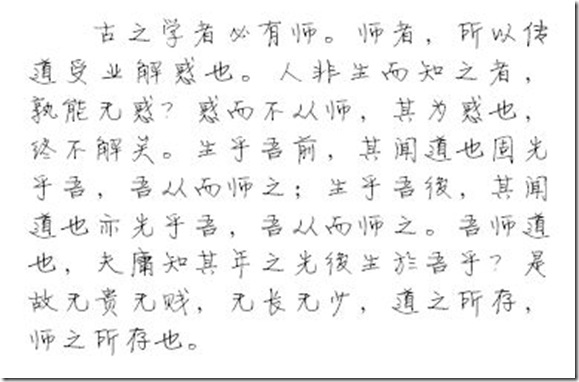 古之学者必有师。师者，所以传
道受业解惑也。人非生而知之者，
孰能无惑？惑而不从师，其为惑也，
终不解矣。生乎吾前，其闻道也固先
乎吾，吾从而师之；生乎吾後，其闻
道也亦先乎吾，吾从而师之。吾师道
也，夫庸知其年之先後生於吾乎？是
故无贵无贱，无长无少，道之所存，
师之所存也。